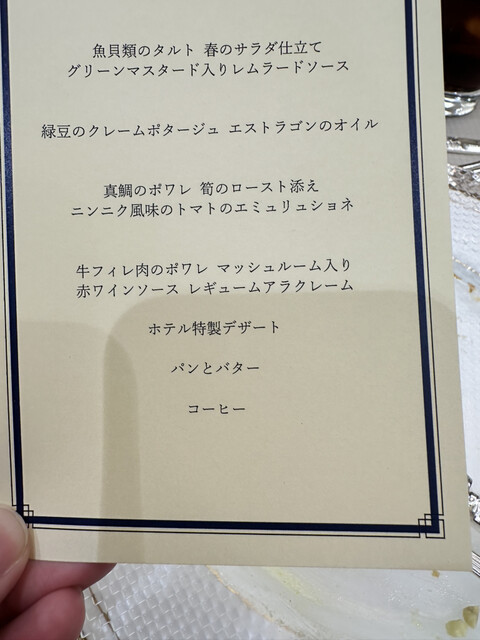 魚貝類のタルト 春のサラダ仕立て
グリーンマスタード入りレムラードソース
緑豆のクレームポタージュ エストラゴンのオイル
真鯛のポワレ 筍のロースト添え
ニンニク風味のトマトのエミュリュショネ
牛フィレ肉のポワレ マッシュルーム入り
赤ワインソース レギュームアラクレーム
ホテル特製デザート
パンとバター
コーヒー